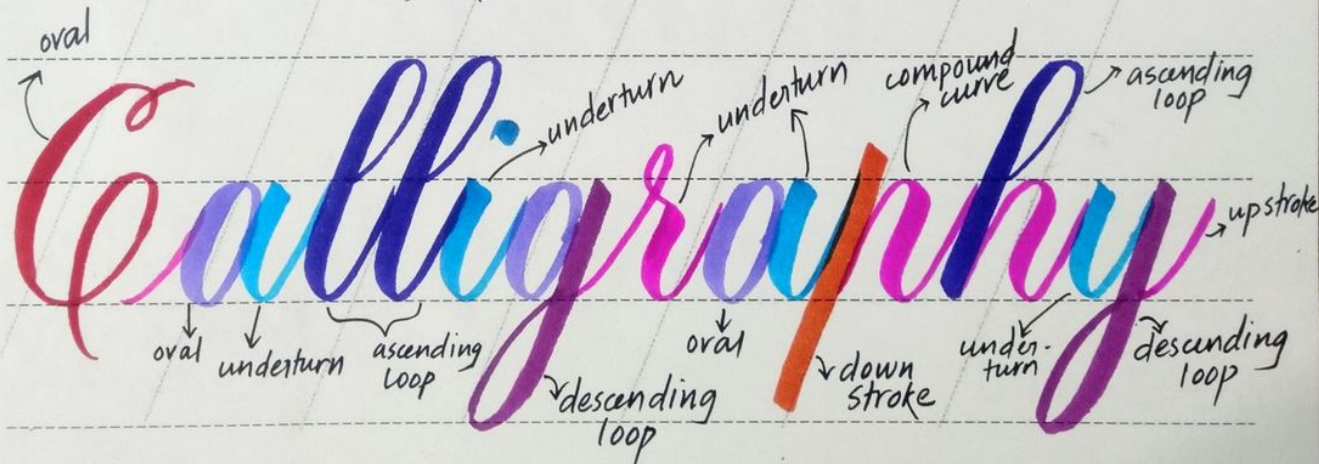 oval
underturn
underturn
compound
curve
ascending
loop
Calligraphy
upstroke
oval
underturn
ascending
loop
descending
loop
oval
down
stroke
under-
turn
descending
loop